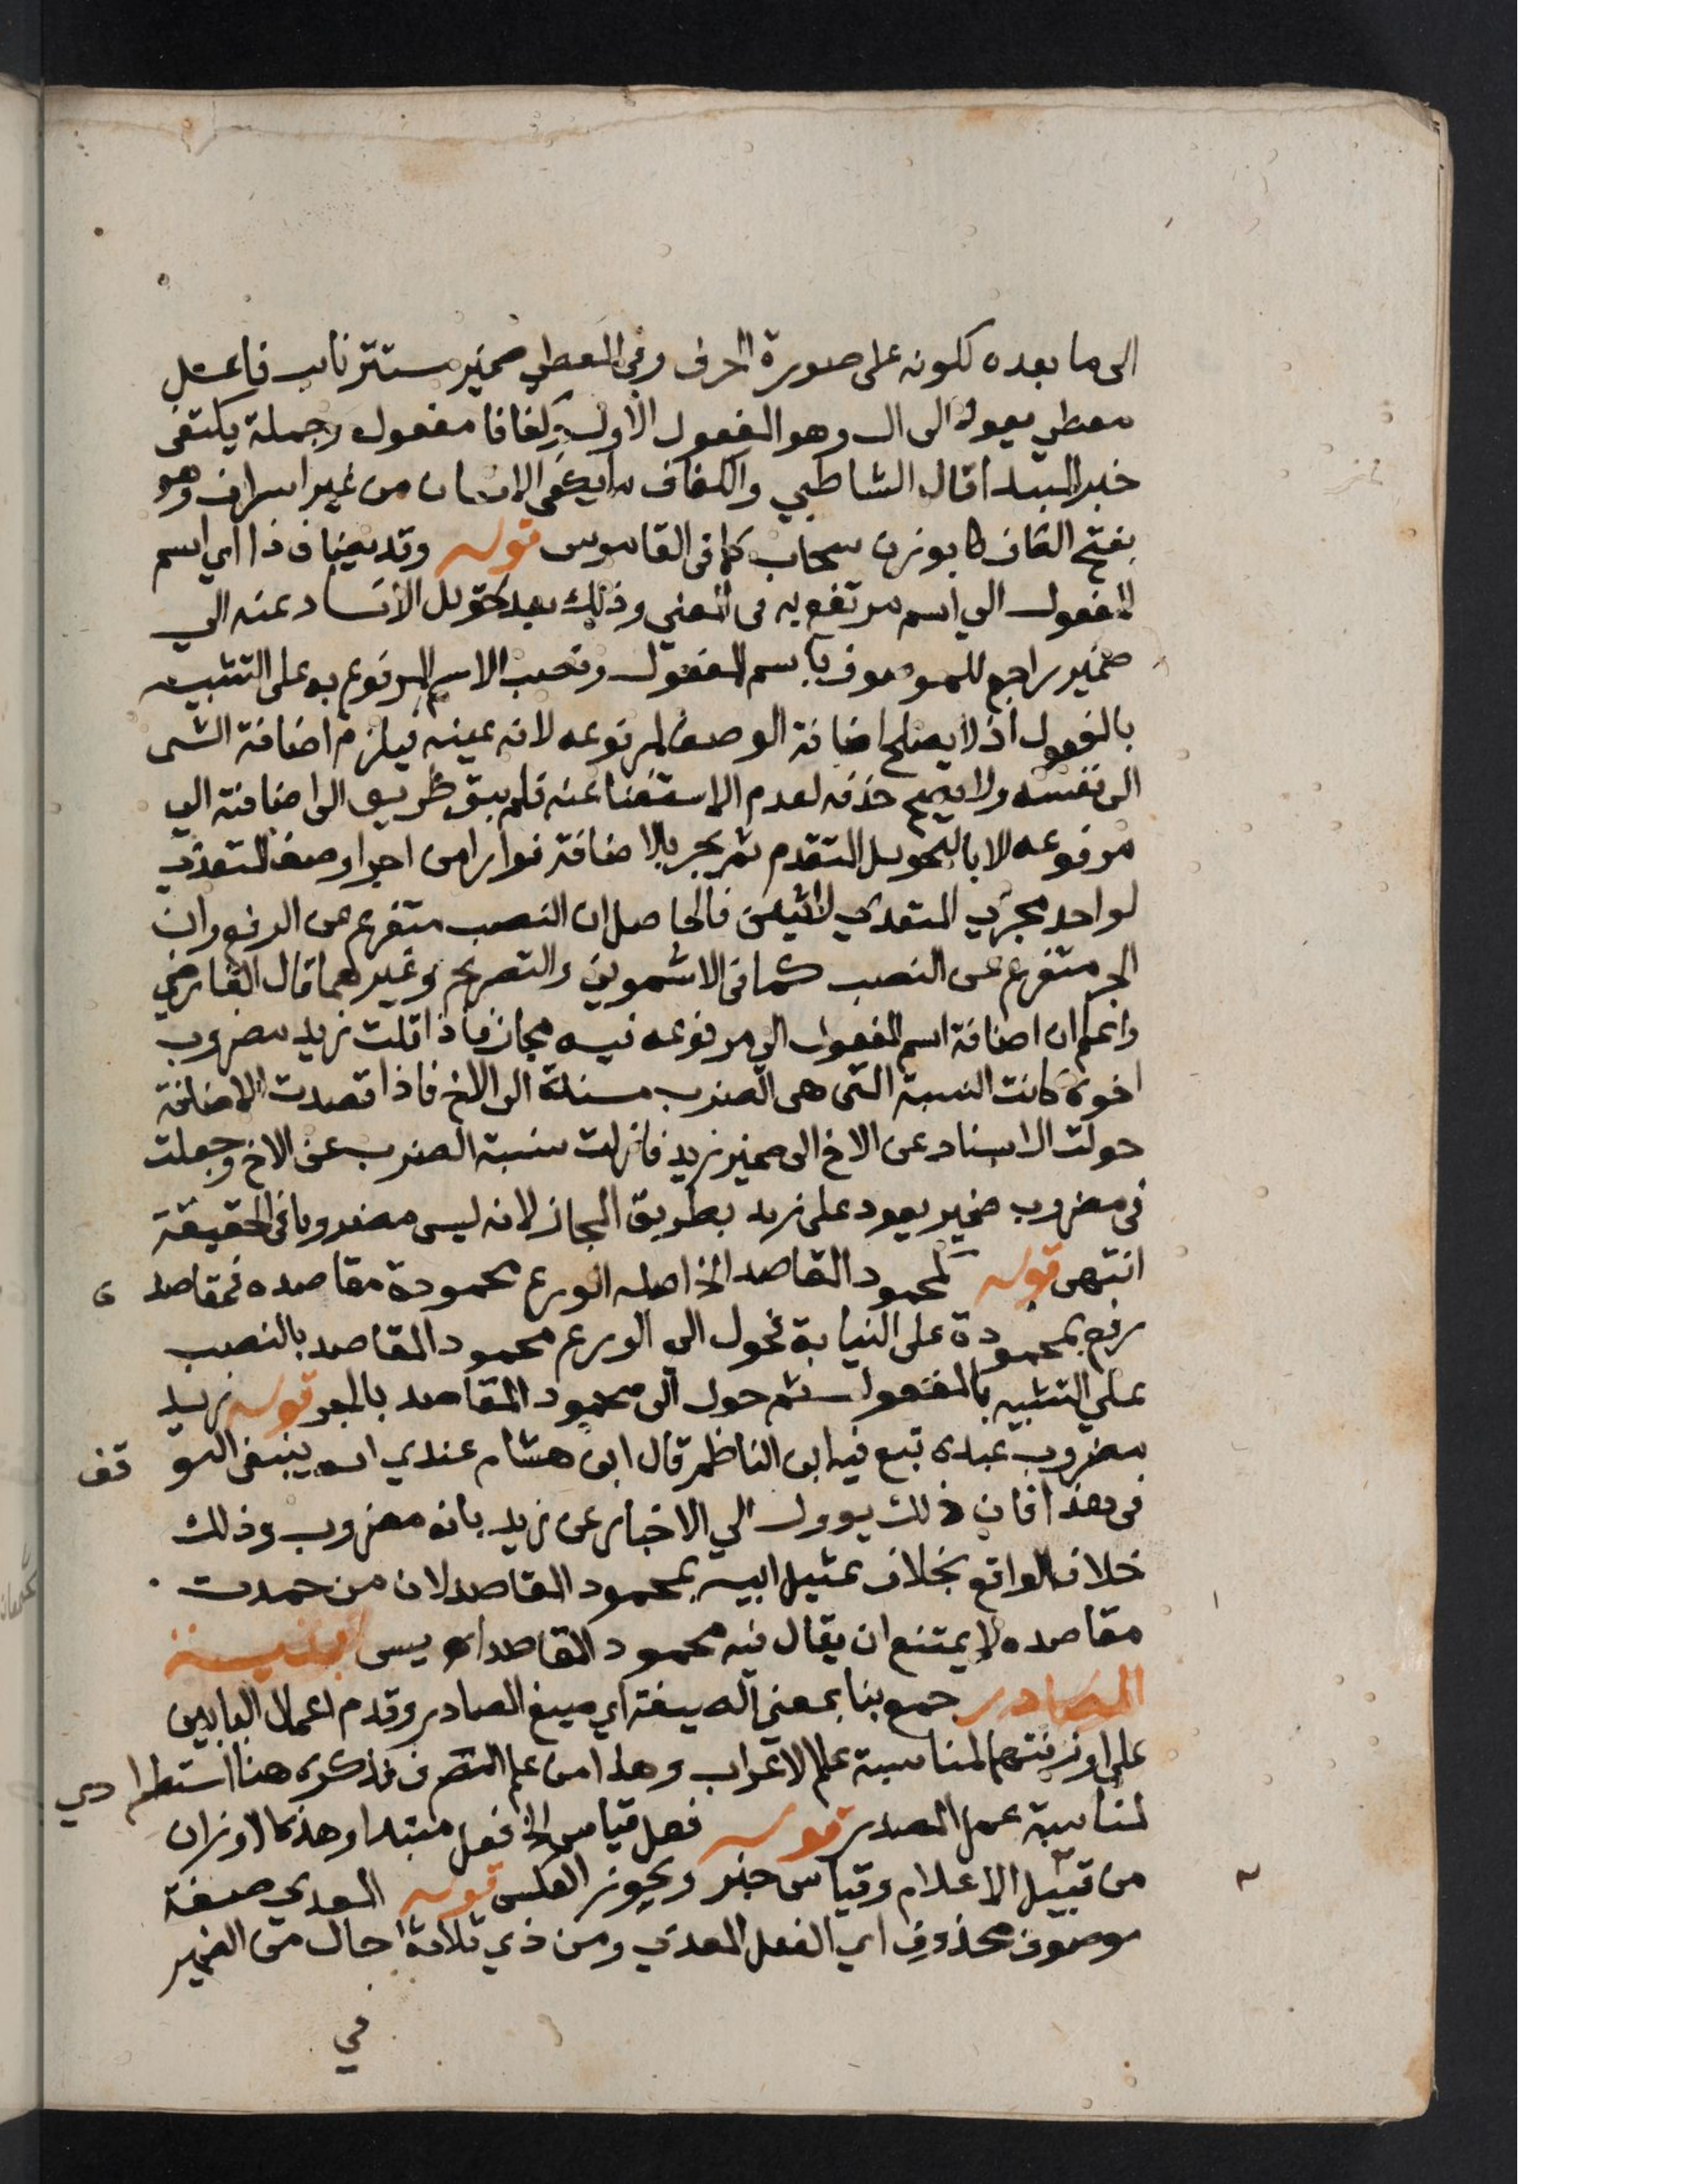 الى ما بعده لكونه على صورة الحرف وفى المعطي ضمير مستتر نايب فاعل
معطي يعود الى ال وهو المفعول الاول وكفافا مفعول وجملة يكتفى
خبر المبتدا قال الشاطبي والكفاف ما يكفى الانسان من غير اسراف وهو
بفتح الكاف بوزن سحاب كما فى القاموس قوله وقد يضاف ذا اي اسم
المفعول الي اسم مرتفع به فى المعني وذلك بعد تحويل الاسناد عنه الي
ضمير راجع للموصوف باسم المفعول ونصب الاسم المرفوع به على التشبيه
بالمفعول اذ لا يصلح اضافة الوصف لمرفوعه لانه عينه فيلزم اضافة الشى
الى نفسه ولا يصح حذفه لعدم الاستغنا عنه فلم يبق طريق الى اضافته الي
مرفوعه الا بالتحويل المتقدم ثم يجر بالاضافة فرارا من اجرا وصف المتعدي
لواحد مجري المتعدي لاثنين فالحاصل ان النصب متفرع عن الرفع وان
الجر متفرع عن النصب كما فى الاشموني والتصريح وغيرهما قال الفارضي
واعلم ان اضافة اسم المفعول الي مرفوعه فيه مجاز فاذا قلت زيد مضروب
اخوه كانت النسبة التى هى الضرب مسندة الى الاخ فاذا قصدت الاضافة
حولت الاسناد عن الاخ الى ضمير زيد فازلت نسبة الضرب عن الاخ وجعلت
فى مضروب ضمير يعود على زيد بطريق المجاز لانه ليس مضروبا فى الحقيقة
انتهى قوله كمحمود المقاصد الخ اصله الورع محمودة مقاصده فمقاصد ه
رفع بمحمودة على النيابة فحول الى الورع محمود المقاصد بالنصب
على التشبيه بالمفعول ثم حول الى محمود المقاصد بالجر قوله زيد
مضروب عبده تبع فيه ابن الناظم قال ابن هشام عندي انه ينبغى التو قف
فى هذا فان ذلك يوول الي الاخبار عن زيد بانه مضروب وذلك
خلاف الواقع بخلاف تمثيل ابيه بمحمود المقاصد لان من حمدت
مقاصده لا يمتنع ان يقال فيه محمود المقاصد ابنية
المصادر جمع بنا بمعني الصيغة اي صيغ المصادر وقدم اعمال البابين
على اوزنتهما لمناسبة علم الاعراب وهذا من علم التصرف فذكره هنا استطرا دي
لمناسبة عمل المصدر قوله فعل قياس الخ فعل مبتدا وهذه الاوزان
من قبيل الاعلام وقياس خبر ويجوز العكس قوله المعدي صفة
موصوف محذوف اي الفعل المعدي ومن ذي ثلاثة حال من الضمير
في